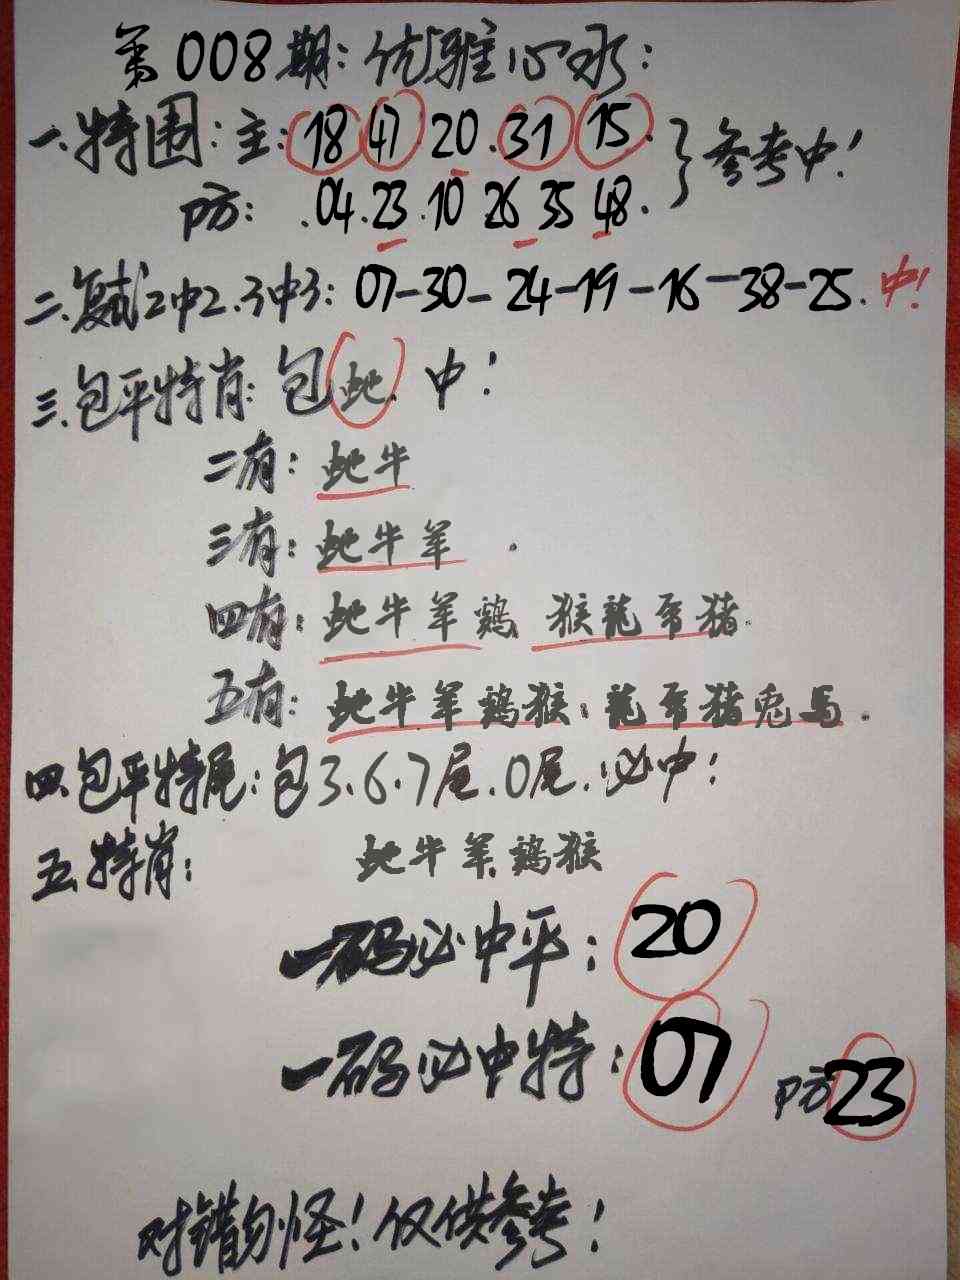 第008期:优雅心水:
一.特围:主:18 47 20.31 15.
防:.04.23.10 26 35 48.
参考中!
二.复试2中2.3中3:07-30-24-19-16-38-25.中!
三.包平特肖:包蛇.中!
二有:蛇牛
三有:蛇牛羊.
四有:蛇牛羊鷄 猴龍虎猪.
五有:蛇牛羊鷄猴:龍虎猪兎马.
四.包平特尾:包3.6.7尾.0尾.必中!
五.特肖:蛇牛羊鷄猴
一码必中平:20
一码必中特:07 防23
对错勿怪!仅供参考!